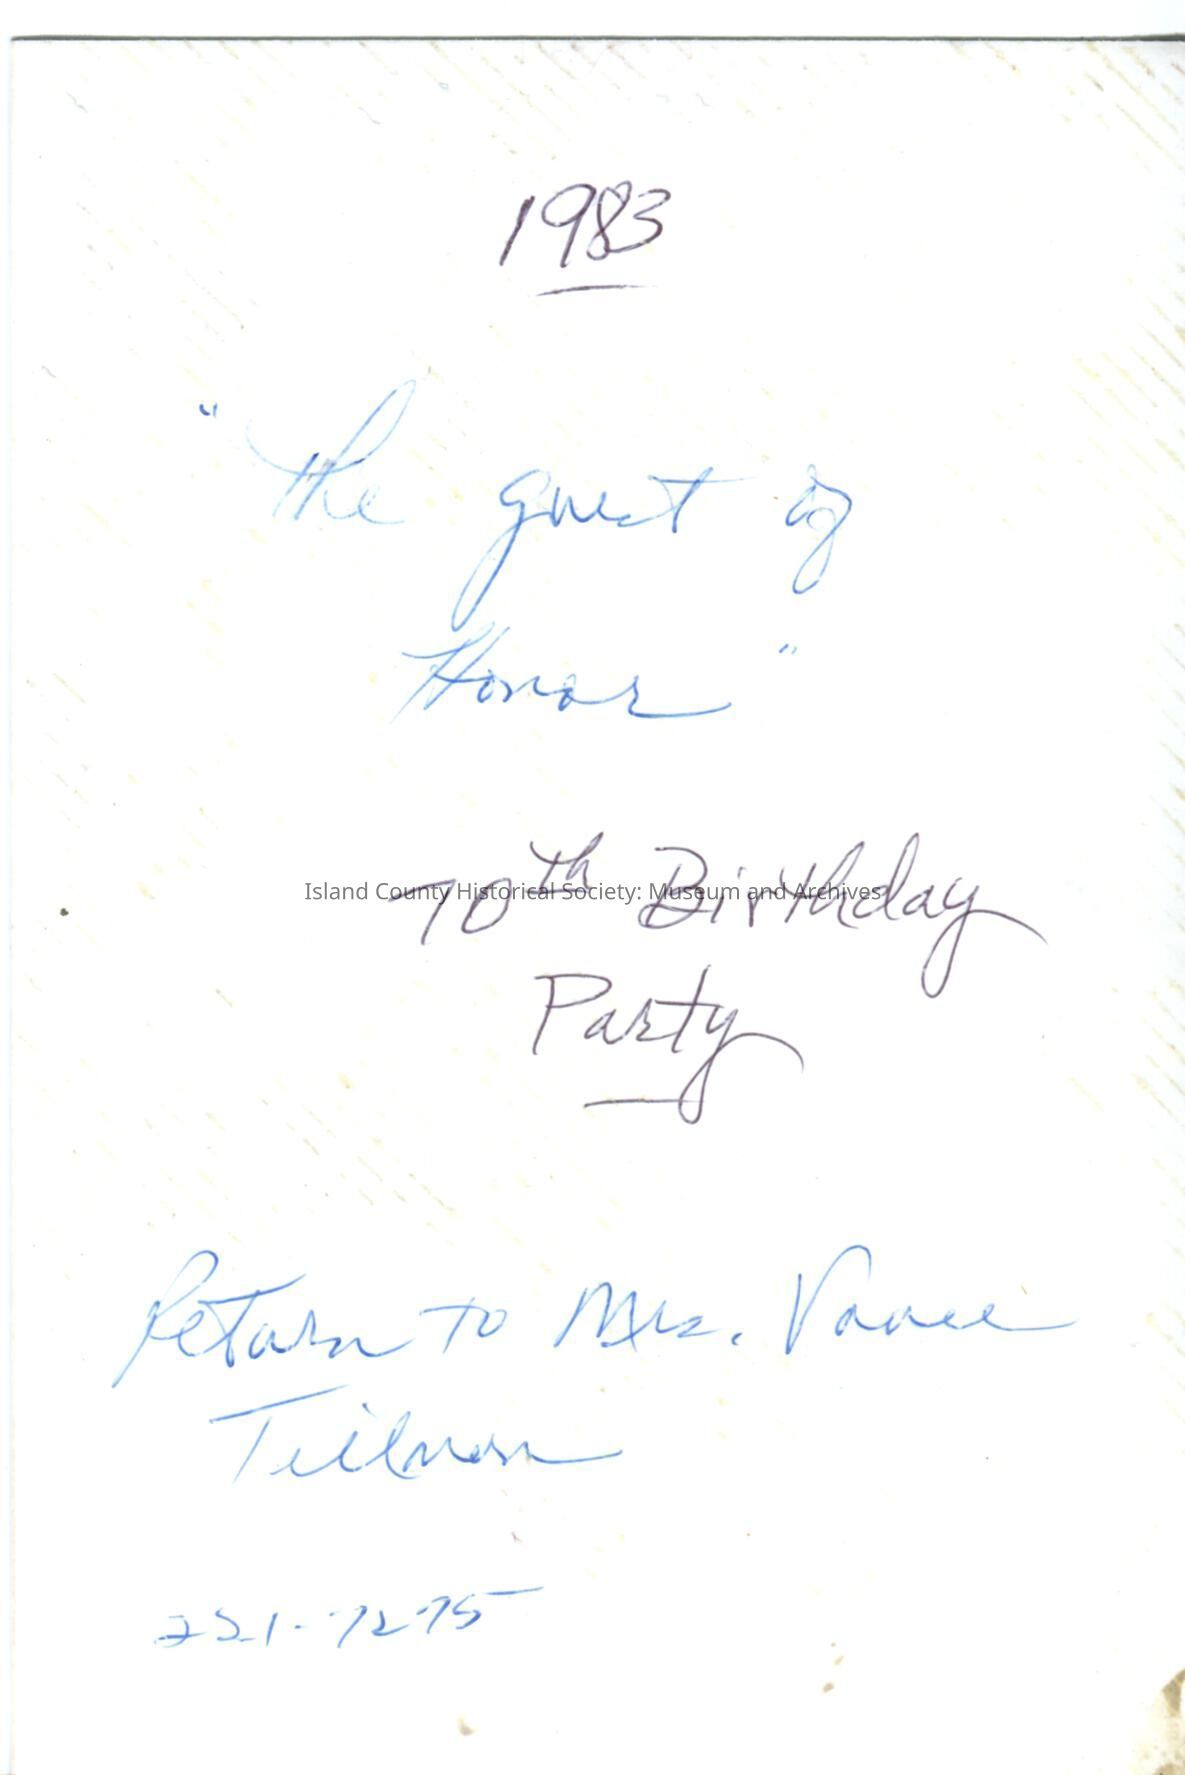 1983
"The guest of
Honor"
70th Birthday
Island County Historical Society: Museum and Archives
Party
Return to Mrs. Vance
Tillman
221-7275